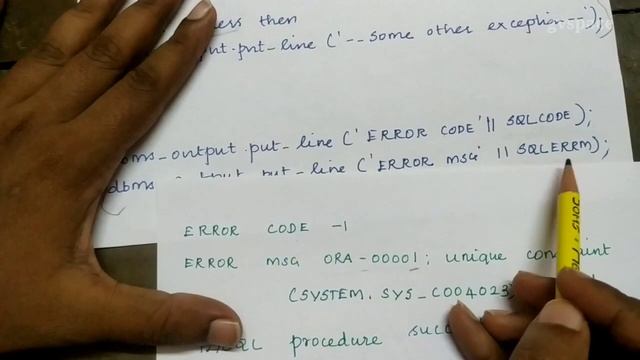 then
put_line ('--some other exception');
dbms_output.put_line ('ERROR CODE' || SQLCODE);
dbms put_line ('ERROR MSG' || SQLERRM);
ERROR CODE -1
ERROR MSG ORA-00001; unique
(SYSTEM.SYS_C004023)
procedure